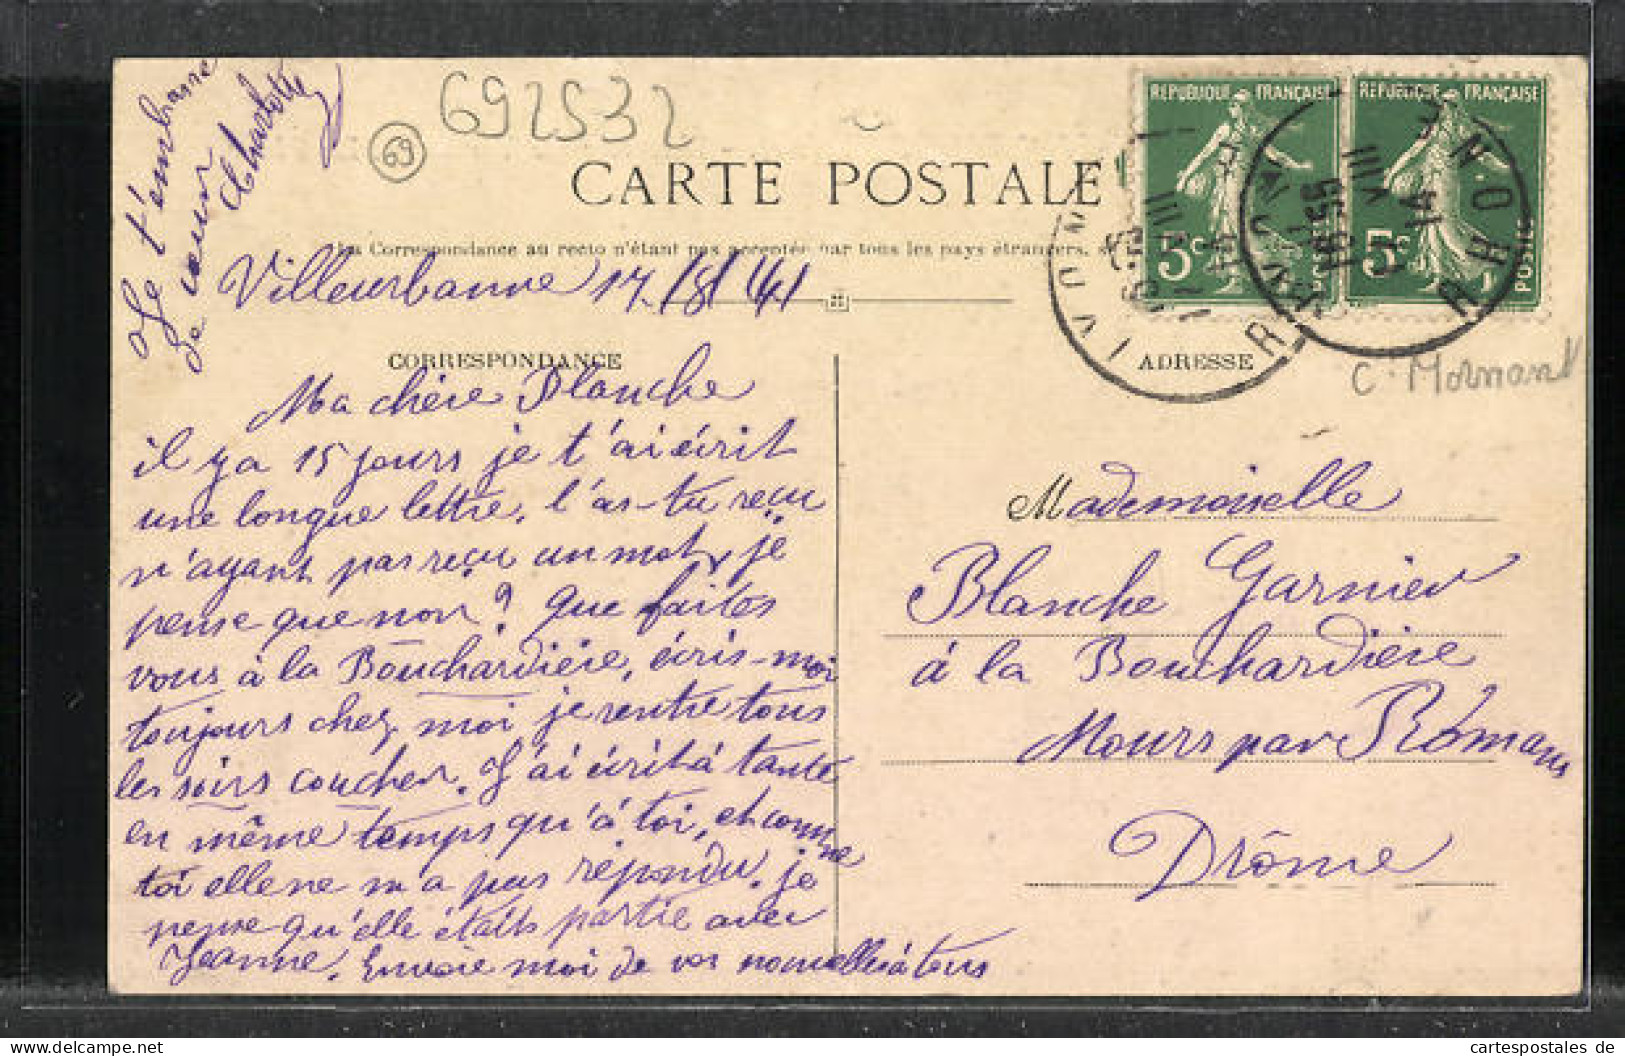 692532
69
RÉPUBLIQUE FRANÇAISE
RÉPUBLIQUE FRANÇAISE
5c
POSTES
5c
POSTES
CARTE POSTALE
La Correspondance au recto n'étant pas acceptée par tous les pays étrangers.
16 55
VIII
14
RHONE
C. Mornant
Villeurbanne 17/8/14
CORRESPONDANCE
Ma chère Blanche
il y a 15 jours je t'ai écrit
une longue lettre, l'as-tu reçu
n'ayant pas reçu un mot, je
pense que non? que faites
vous à la Bouchardière, écris-moi
toujours chez moi je rentre tous
les soirs coucher. J'ai écrit à tante
en même temps qu'à toi, et comme
toi elle ne m'a pas répondu, je
pense qu'elle était partie avec
Jeanne. Envoie moi de vos nouvelles à tous
Je t'embrasse
de cœur
Charlotte
ADRESSE
Mademoiselle
Blanche Garnier
à la Bouchardière
Mours par Romans
Drôme
cartespostales de